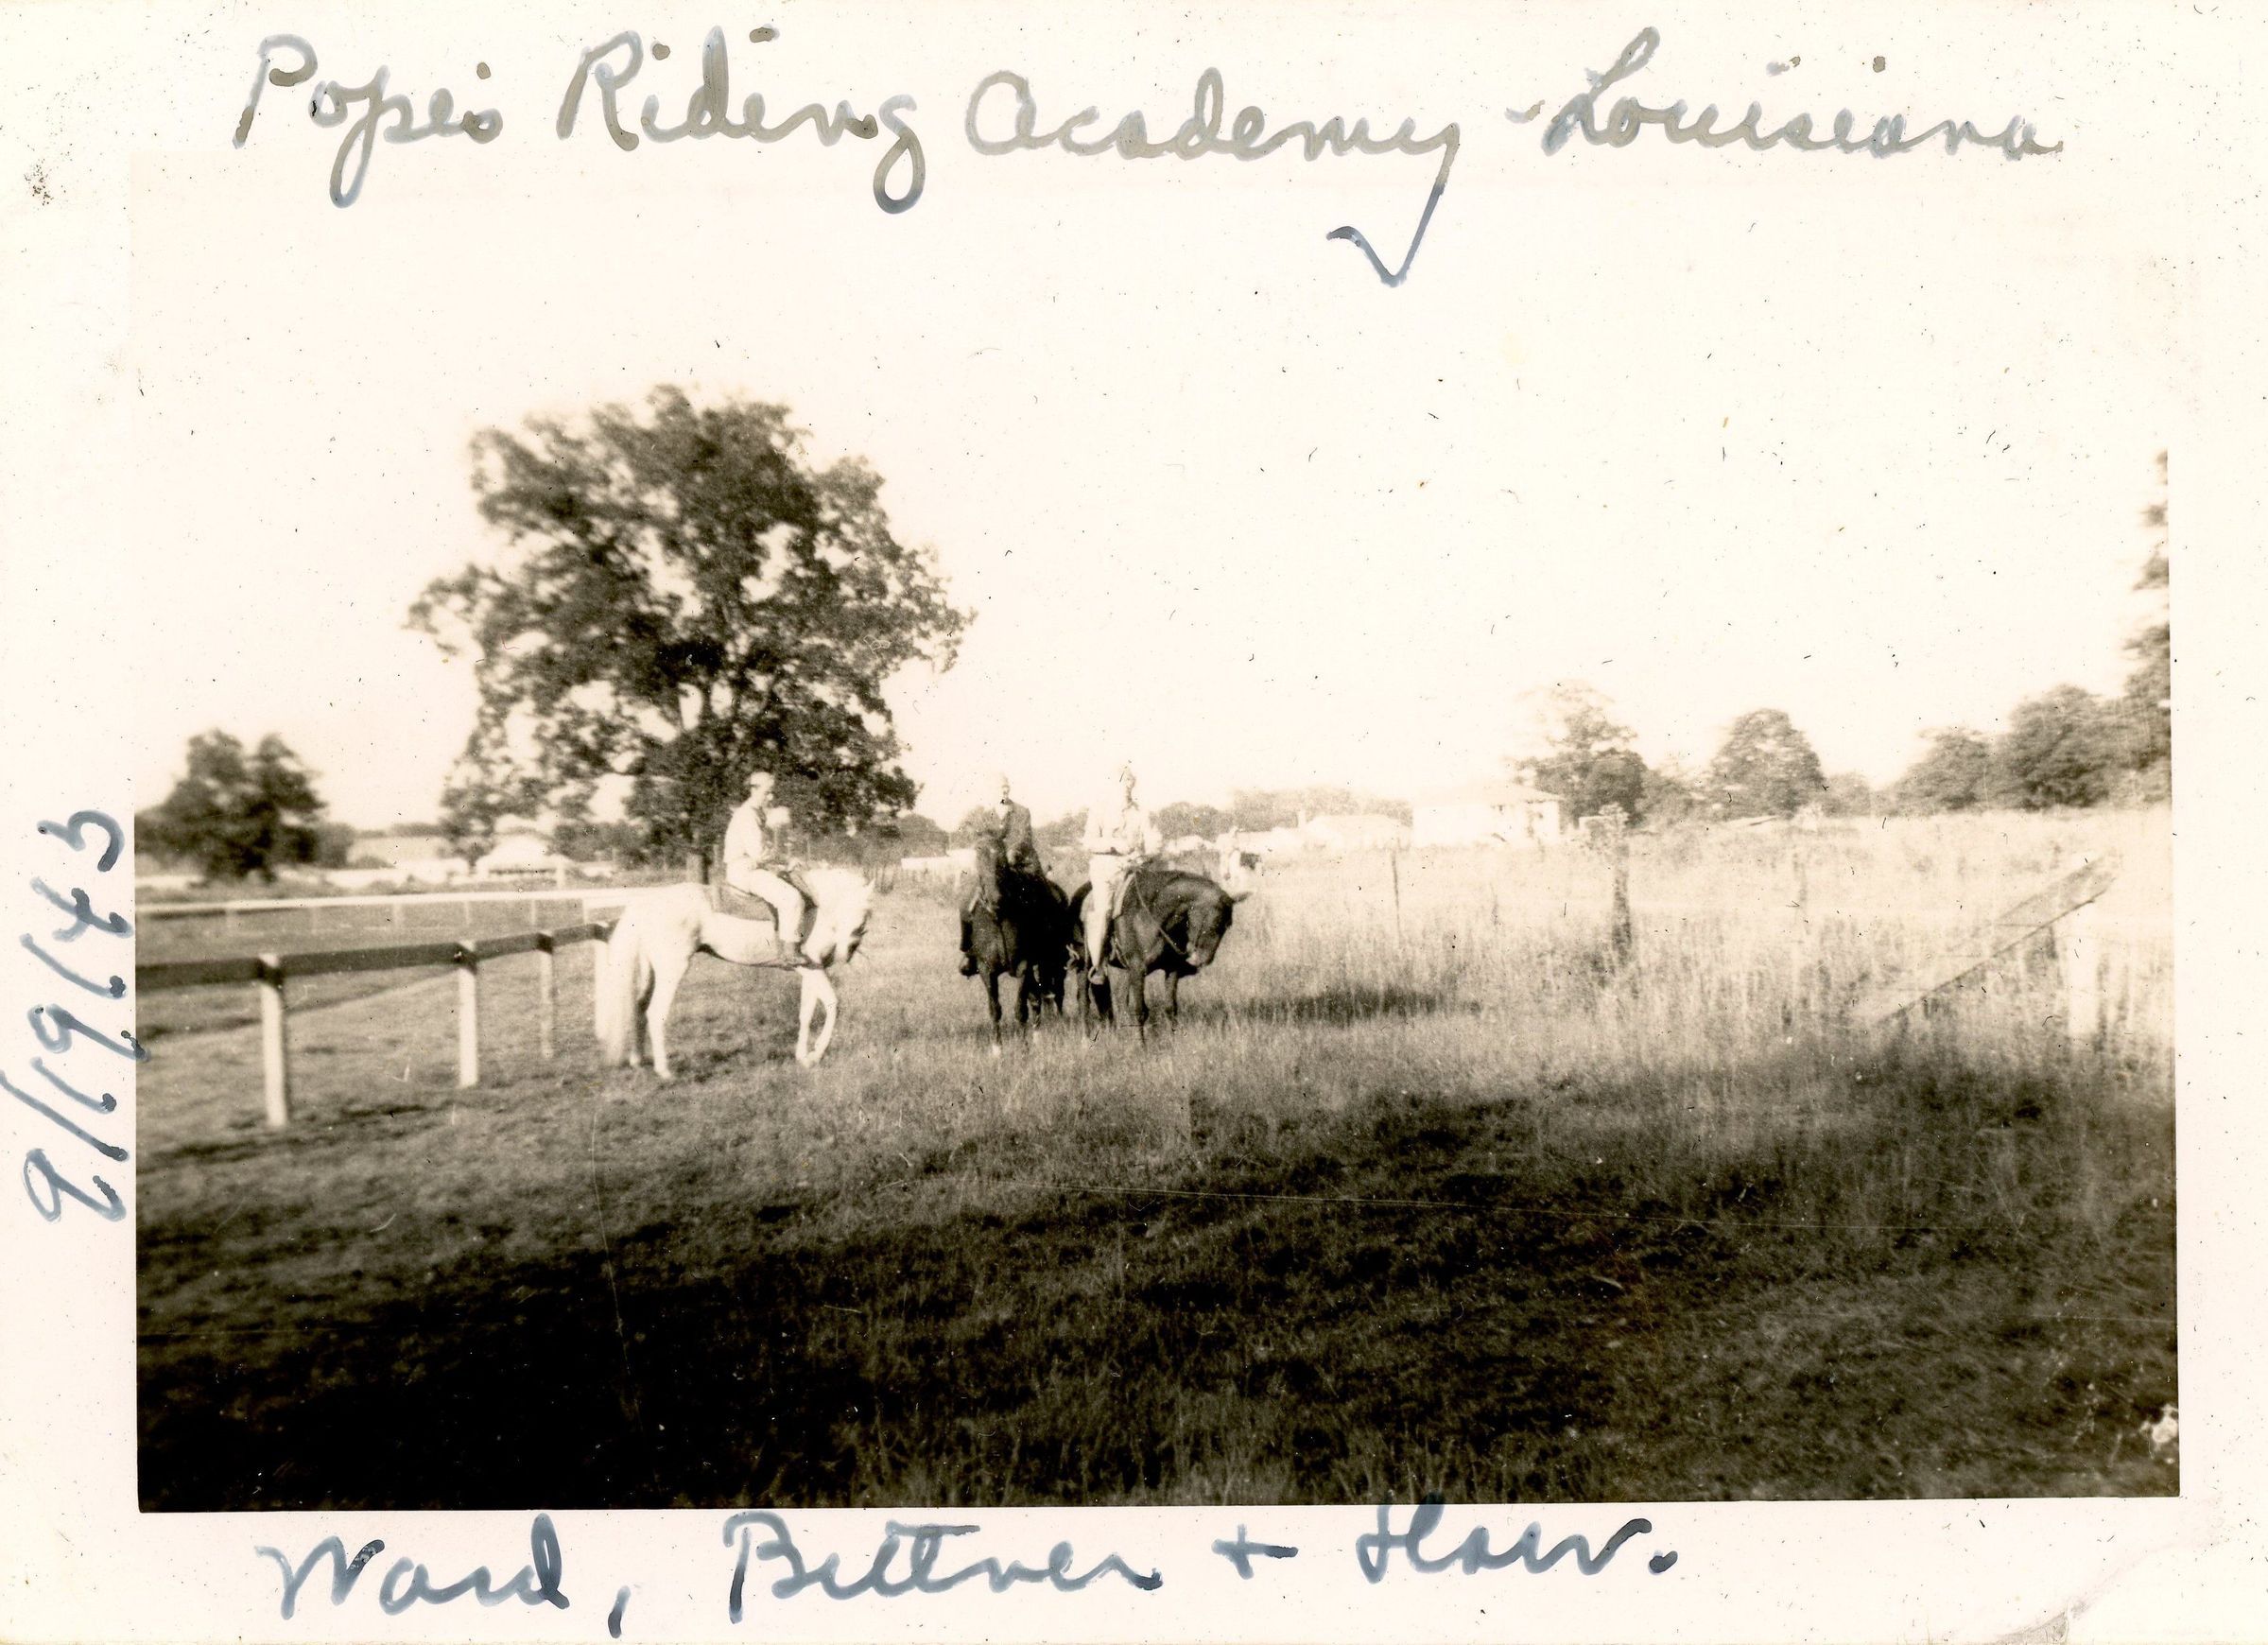 Pope's Riding Academy - Louisiana
9/1943
Ward, Bittner +